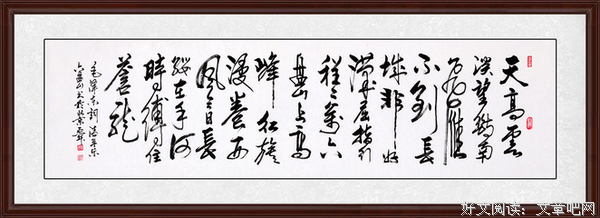 天高雲
淡望斷南
飛雁
不到長
城非好
漢屈指行
程二萬六
盤山上高
峰紅旗
漫卷西
風今日長
纓在手何
時縛住
蒼龍
毛澤東詞清平樂
六盤山
好文阅读：文章吧网